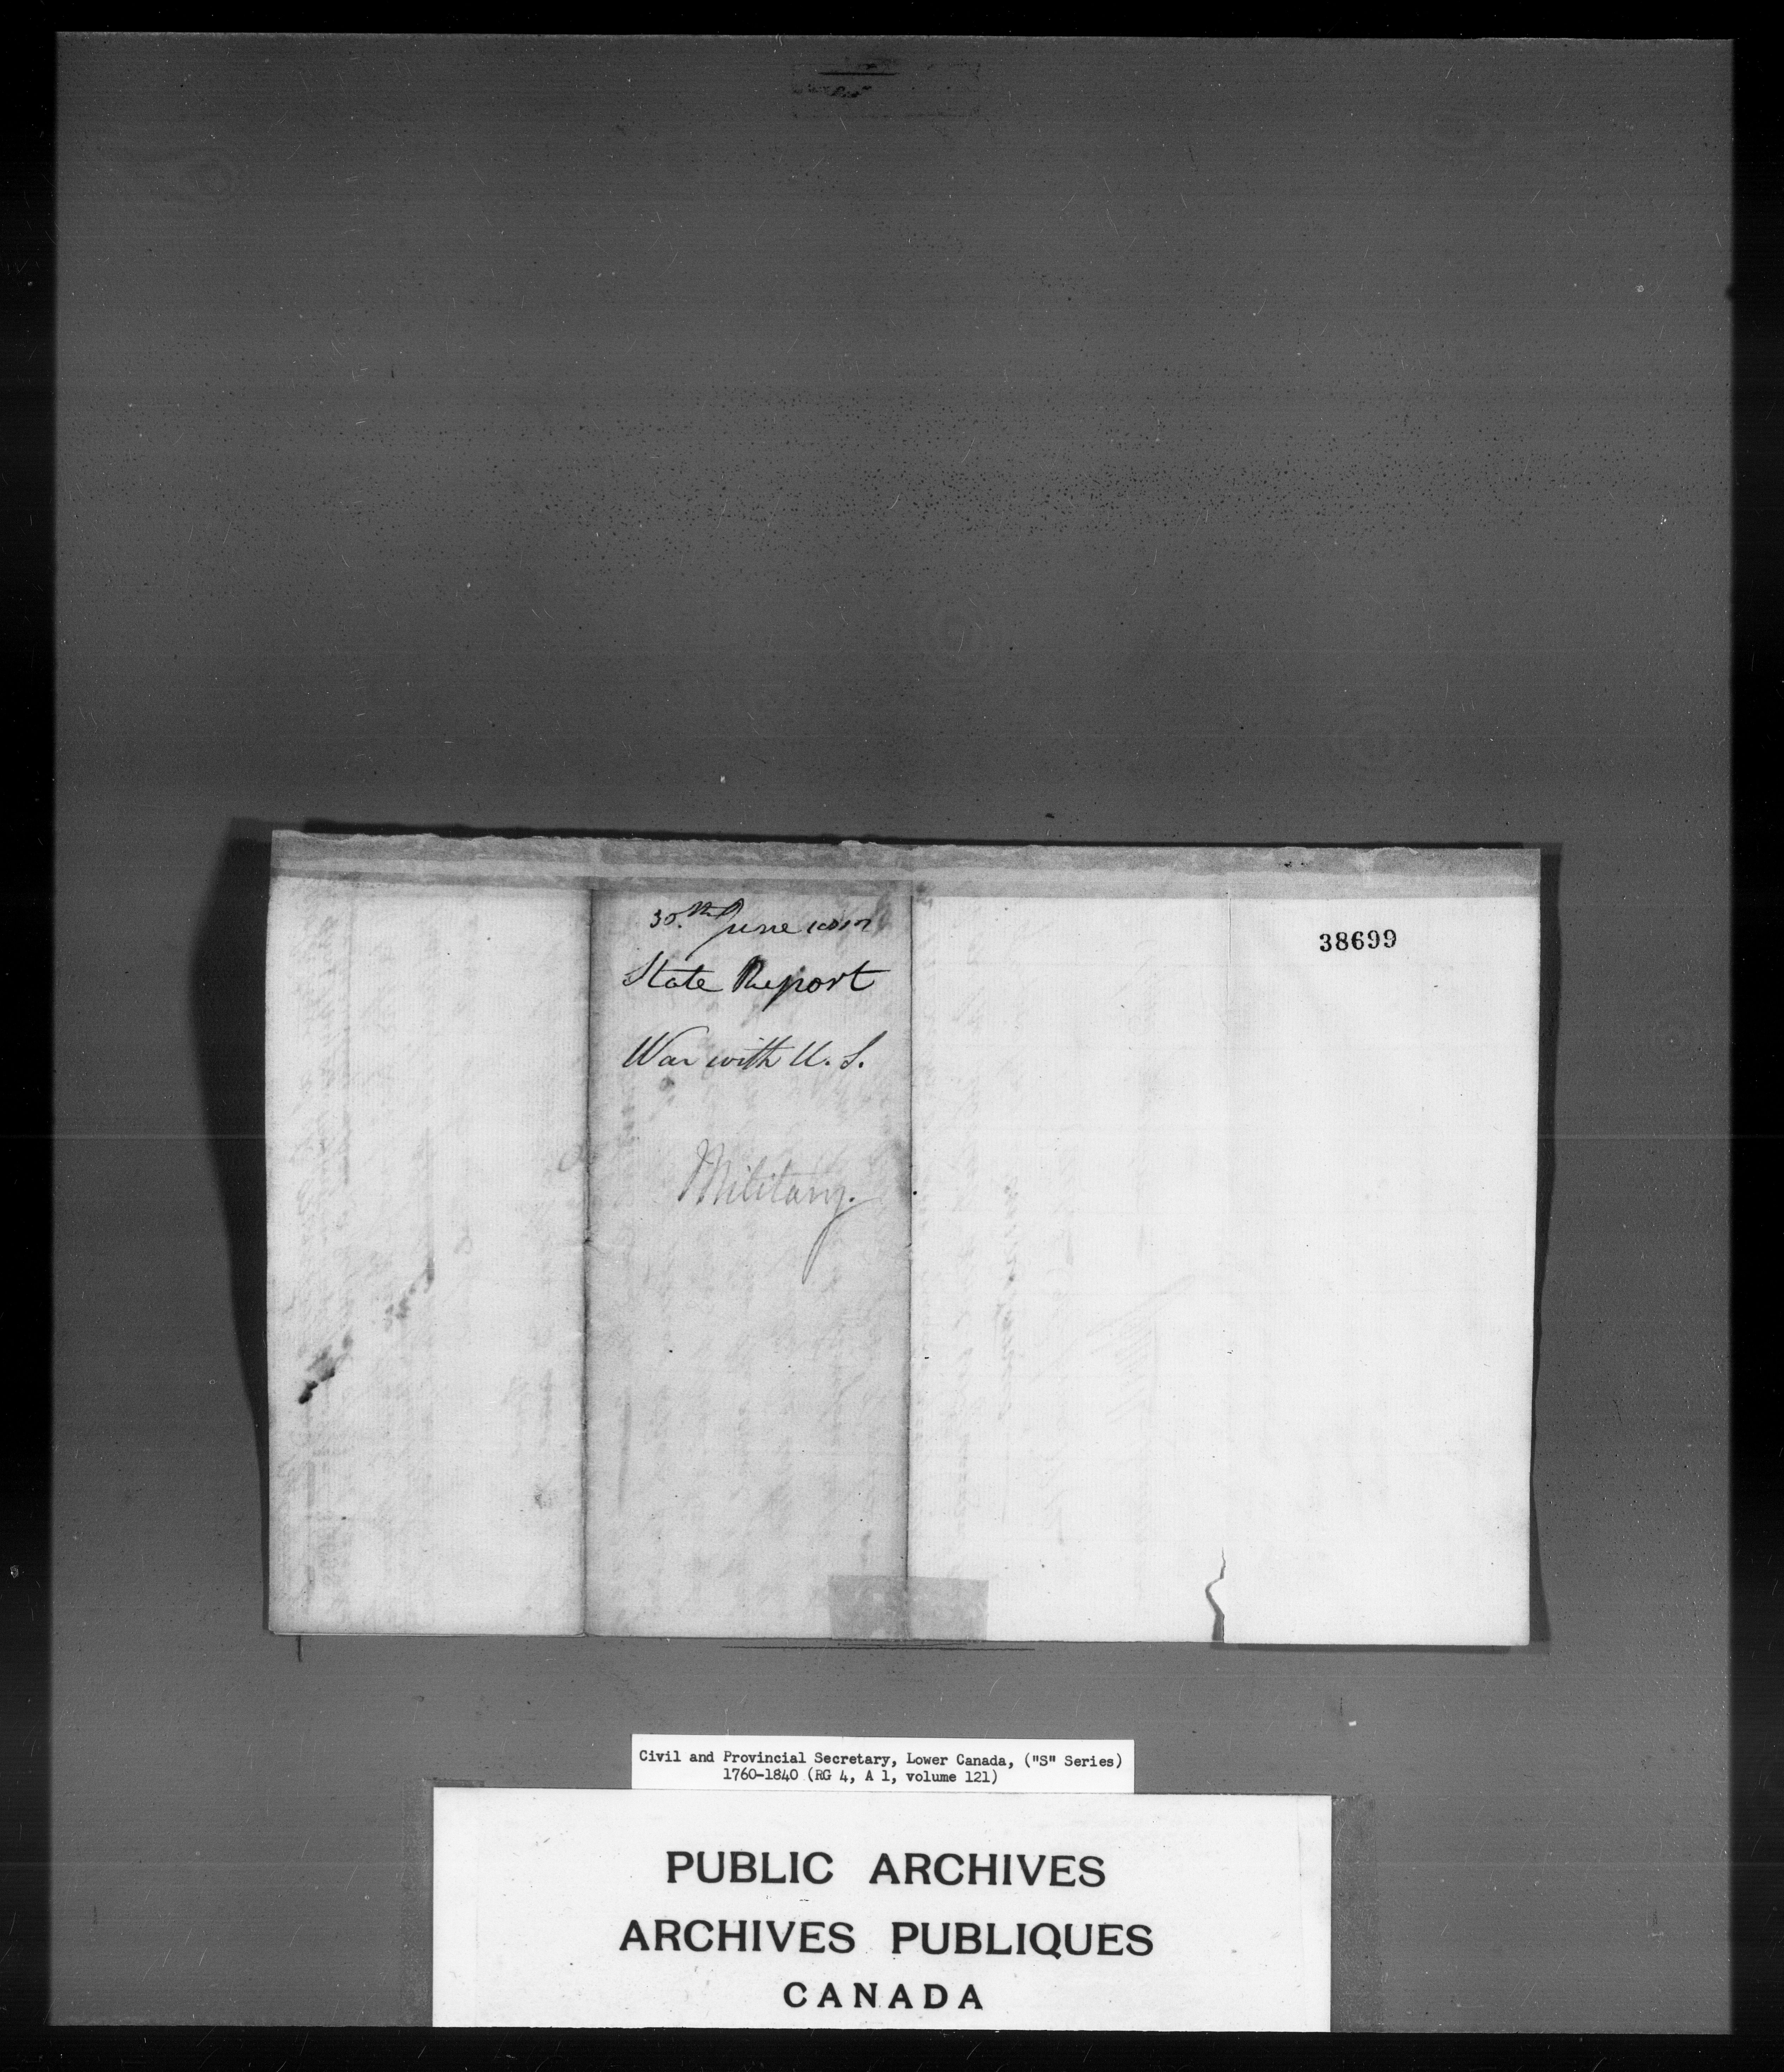 30th June 1812
State Report
War with U. S.
Military.
38699
Civil and Provincial Secretary, Lower Canada, ("S" Series)
1760-1840 (RG 4, A 1, volume 121)
PUBLIC ARCHIVES
ARCHIVES PUBLIQUES
CANADA